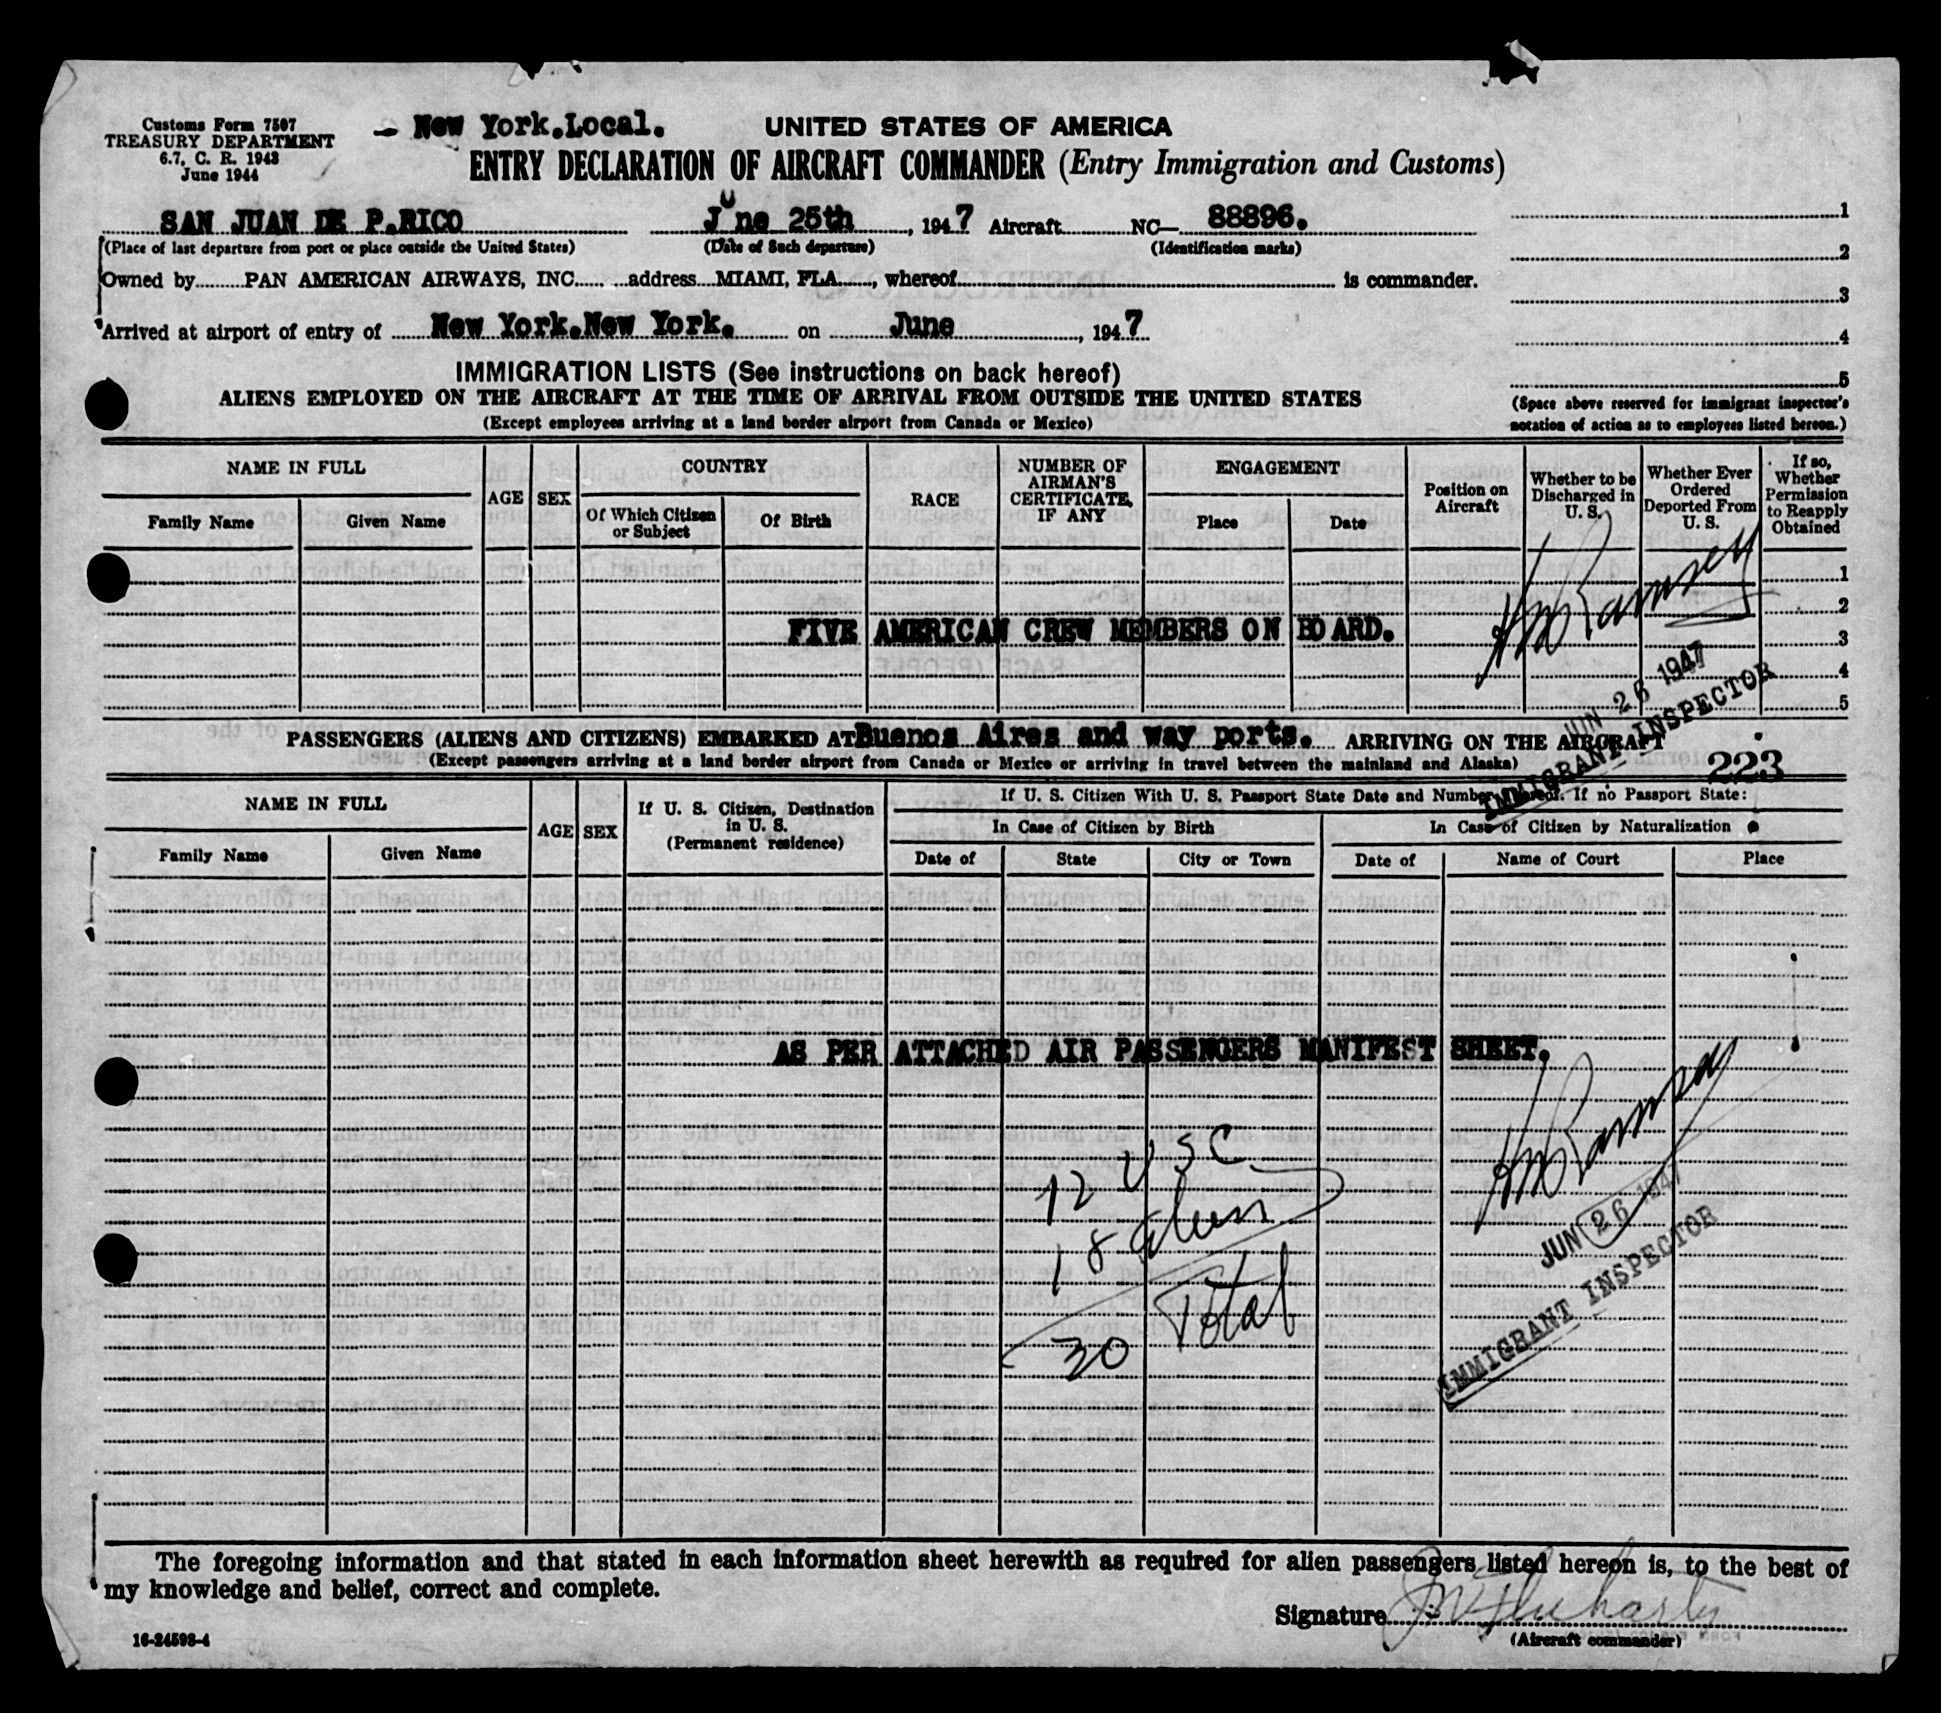 Customs Form 7507
TREASURY DEPARTMENT
6.7, C. R. 1943
June 1944
- New York.Local.
UNITED STATES OF AMERICA
ENTRY DECLARATION OF AIRCRAFT COMMANDER (Entry Immigration and Customs)
SAN JUAN DE P.RICO June 25th, 1947 Aircraft NC— 88896.
(Place of last departure from port or place outside the United States) (Date of Such departure) (Identification marks)
Owned by PAN AMERICAN AIRWAYS, INC. address MIAMI, FLA., whereof is commander.
Arrived at airport of entry of New York.New York. on June, 1947
1
2
3
4
5
(Space above reserved for immigrant inspector's
notation of action as to employees listed hereon.)
IMMIGRATION LISTS (See instructions on back hereof)
ALIENS EMPLOYED ON THE AIRCRAFT AT THE TIME OF ARRIVAL FROM OUTSIDE THE UNITED STATES
(Except employees arriving at a land border airport from Canada or Mexico)
NAME IN FULL
Family Name
Given Name
AGE
SEX
COUNTRY
Of Which Citizen
or Subject
Of Birth
RACE
NUMBER OF
AIRMAN'S
CERTIFICATE,
IF ANY
ENGAGEMENT
Place
Date
Position on
Aircraft
Whether to be
Discharged in
U. S.
Whether Ever
Ordered
Deported From
U. S.
If so,
Whether
Permission
to Reapply
Obtained
1
2
3
4
5
FIVE AMERICAN CREW MEMBERS ON BOARD.
HM Ramsey
JUN 26 1947
IMMIGRANT INSPECTOR
PASSENGERS (ALIENS AND CITIZENS) EMBARKED AT Buenos Aires and way ports. ARRIVING ON THE AIRCRAFT
(Except passengers arriving at a land border airport from Canada or Mexico or arriving in travel between the mainland and Alaska)
223
NAME IN FULL
Family Name
Given Name
AGE
SEX
If U. S. Citizen, Destination
in U. S.
(Permanent residence)
If U. S. Citizen With U. S. Passport State Date and Number thereof. If no Passport State:
In Case of Citizen by Birth
Date of
State
City or Town
In Case of Citizen by Naturalization
Date of
Name of Court
Place
AS PER ATTACHED AIR PASSENGERS MANIFEST SHEET.
12 USC
18 alien
30 Total
HM Ramsey
JUN 26 1947
IMMIGRANT INSPECTOR
The foregoing information and that stated in each information sheet herewith as required for alien passengers listed hereon is, to the best of
my knowledge and belief, correct and complete.
Signature
(Aircraft commander)
16-24598-4